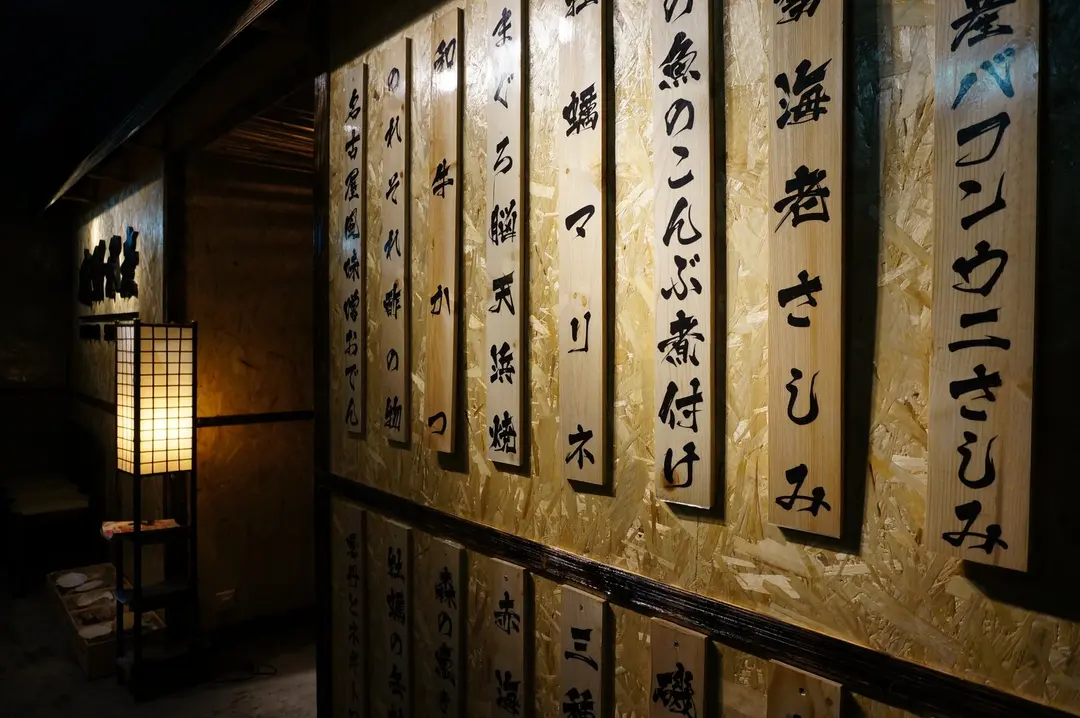 産バフンウニさしみ
勢海老さしみ
の魚のこんぶ煮付け
牡蠣マリネ
まぐろ脳天浜焼
和牛かつ
のれそれ酢の物
名古屋風味噌おでん
磯
三種
赤海
森の
牡蠣の